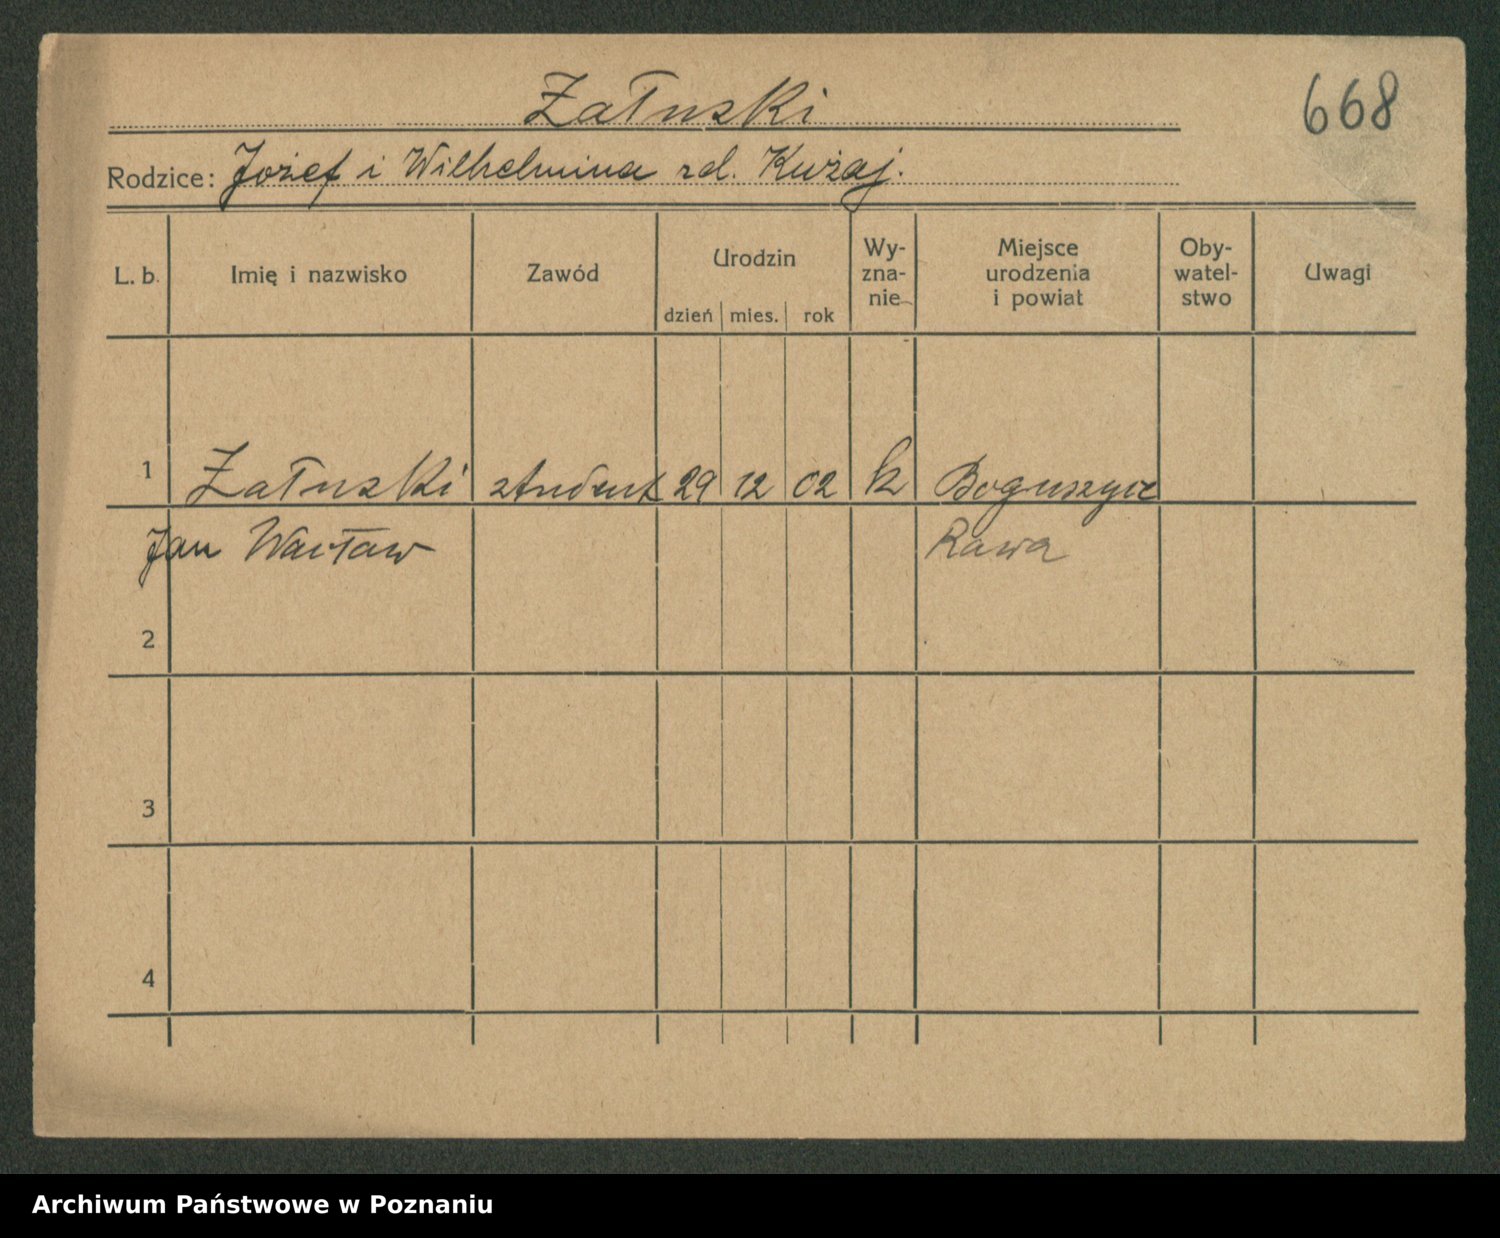 Załuski
668
Rodzice: Józef i Wilhelmina zd. Kużaj.
L. b. Imię i nazwisko Zawód Urodzin dzień mies. rok Wy-zna-nie Miejsce urodzenia i powiat Oby-watel-stwo Uwagi
1 Załuski student 29 12 02 k Boguszyce
Jan Wacław Rawa
2
3
4
Archiwum Państwowe w Poznaniu